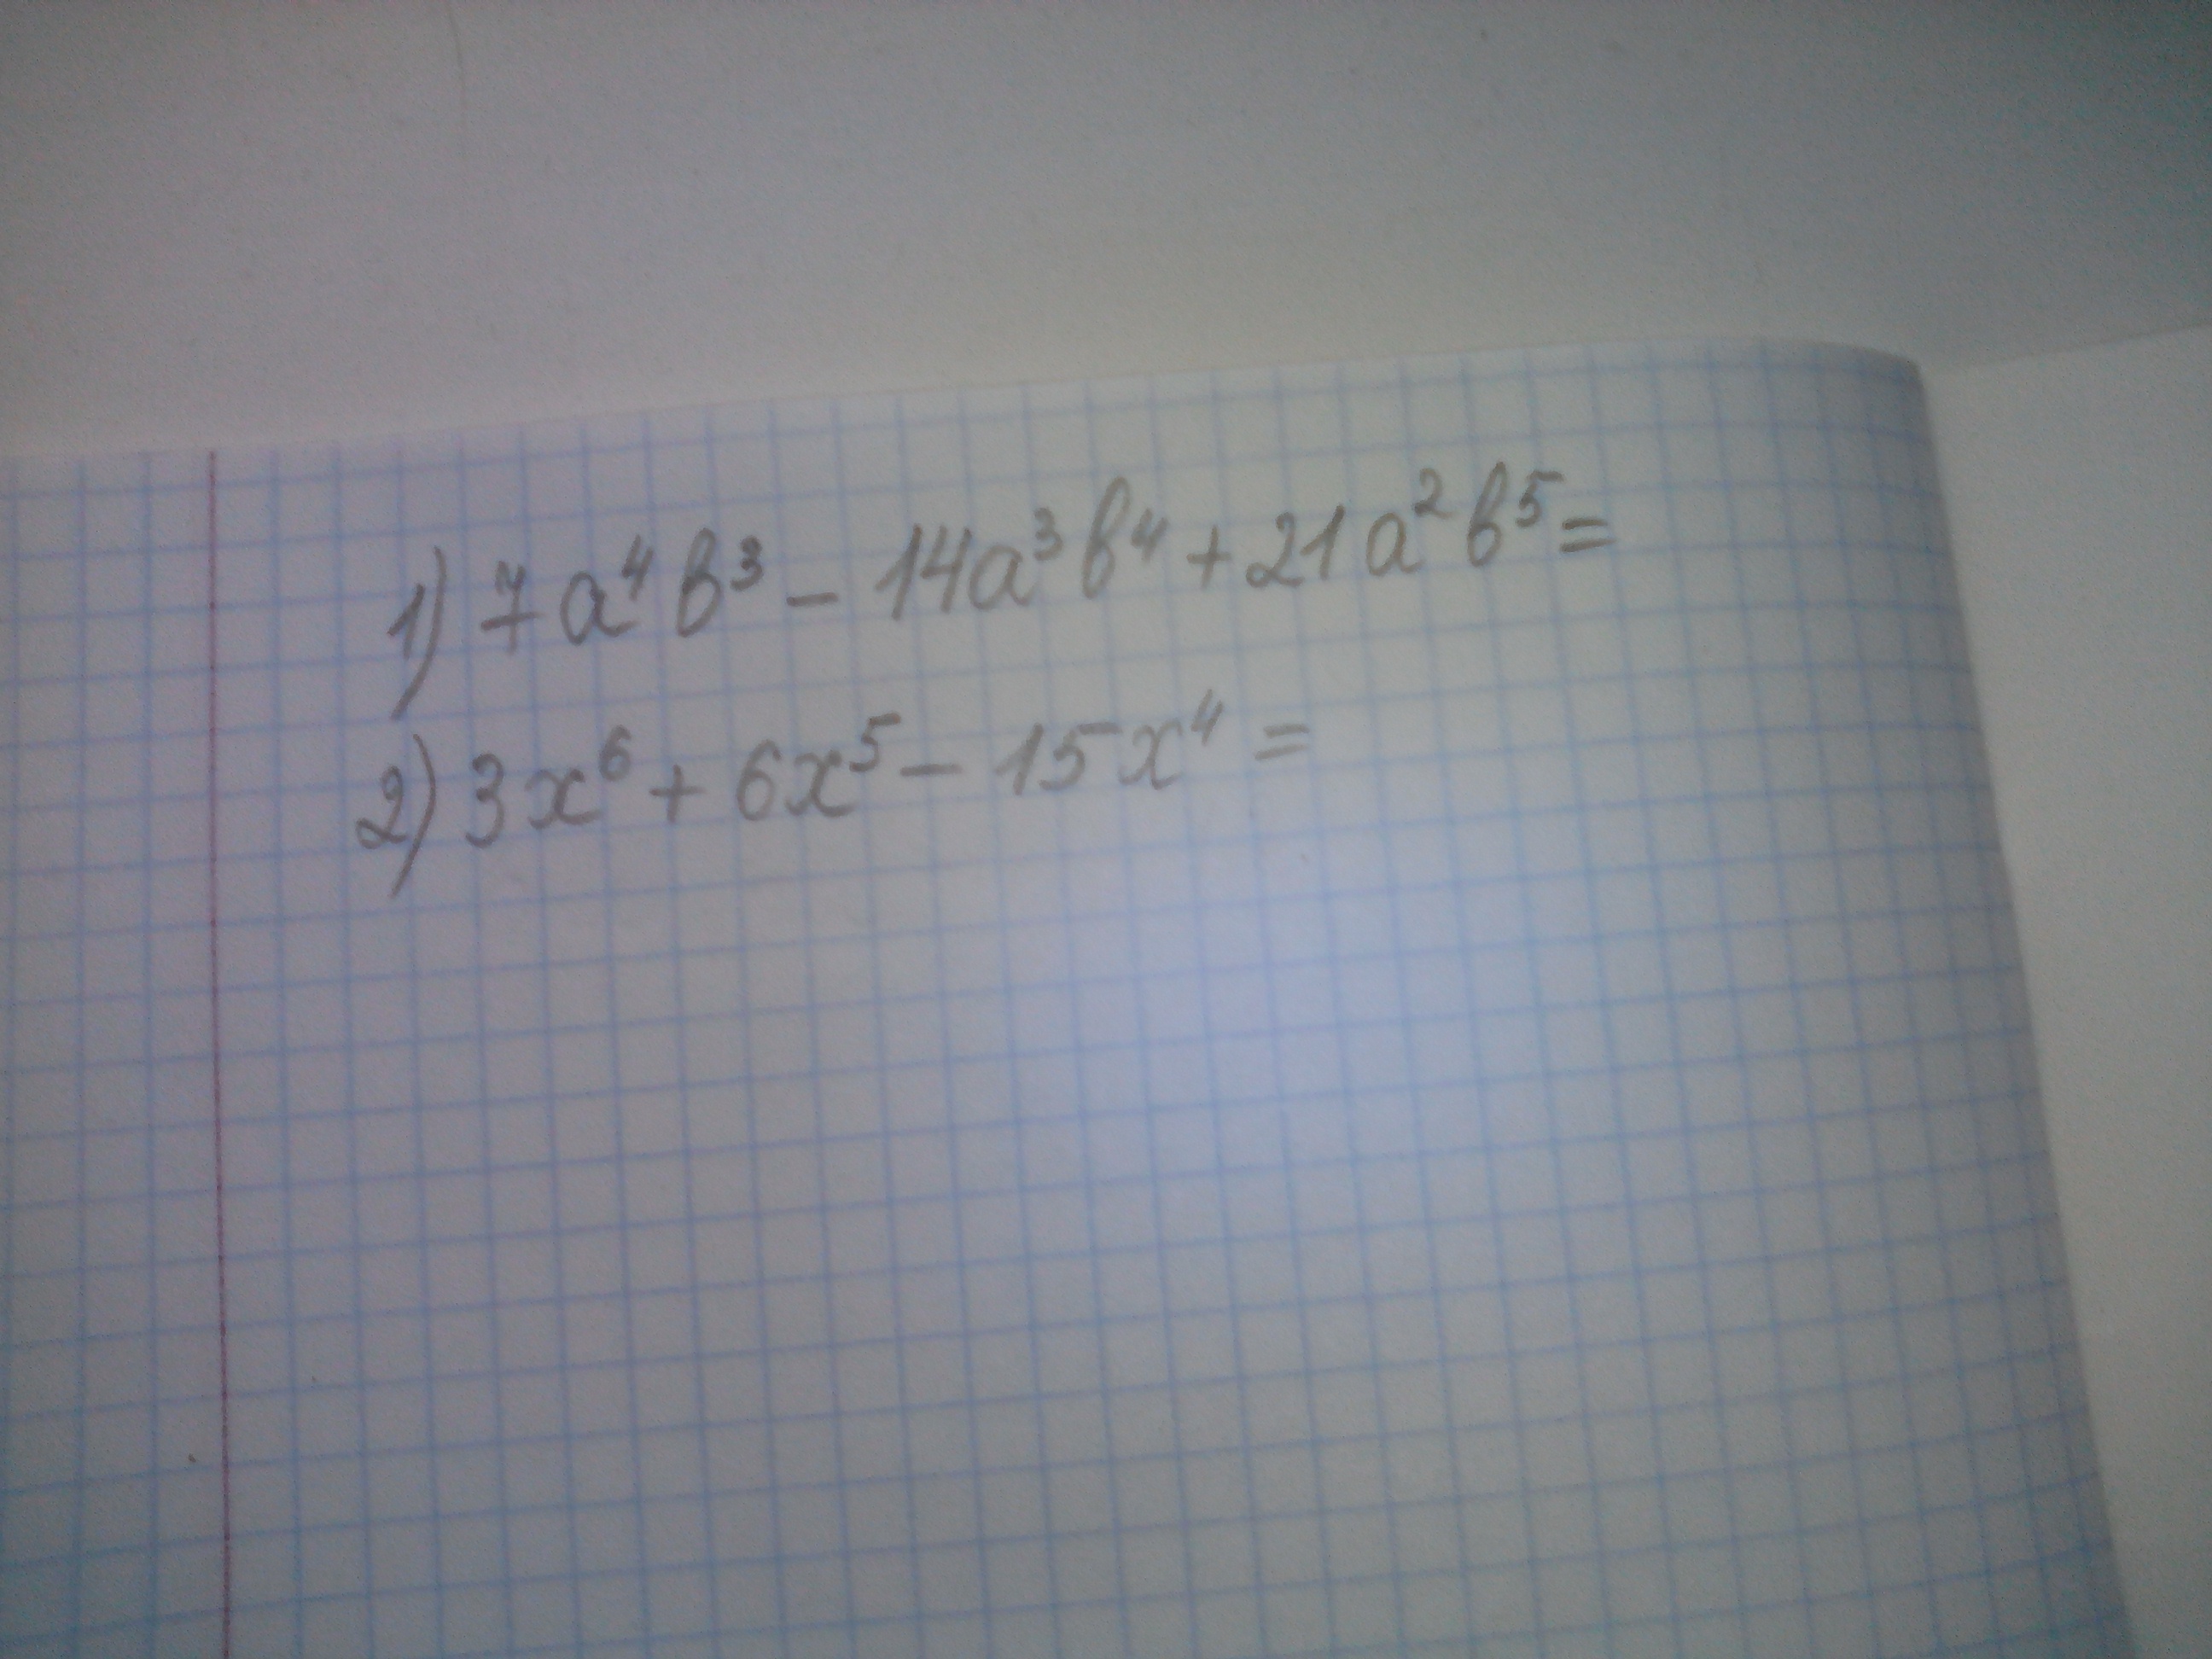 1) 7a⁴b³ - 14a³b⁴ + 21a²b⁵ =
2) 3x⁶ + 6x⁵ - 15x⁴ =